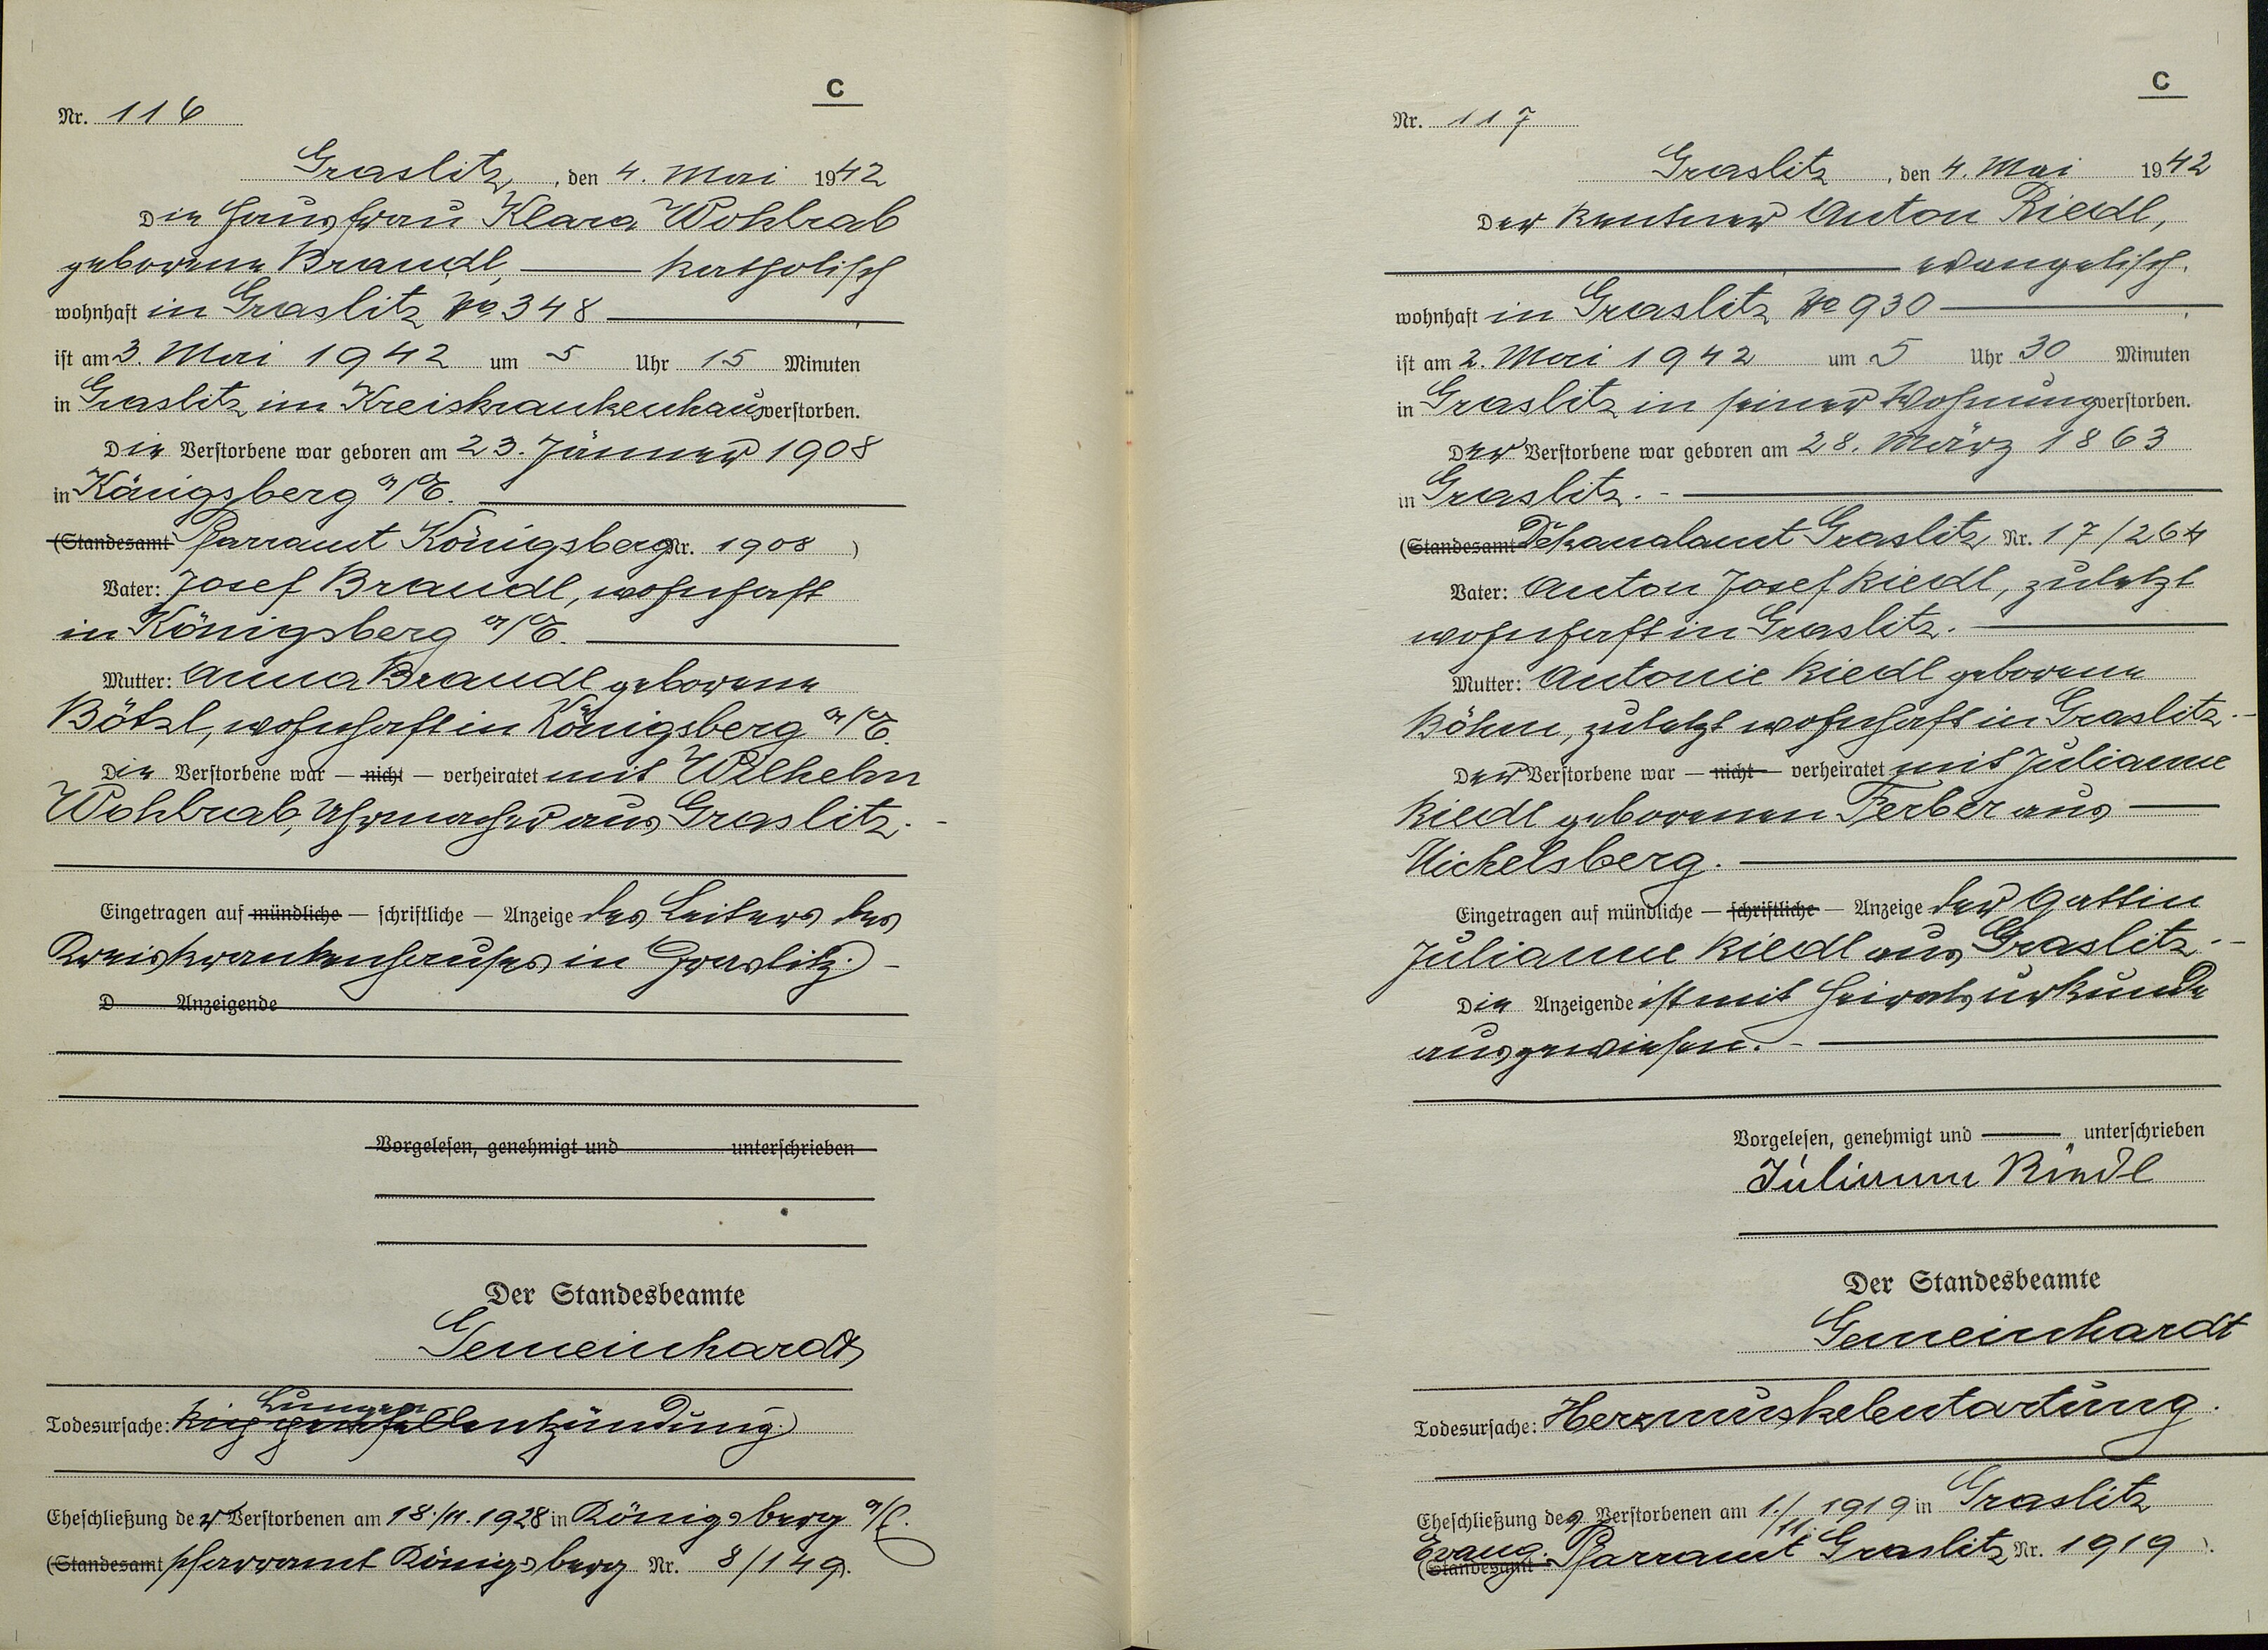 C
Nr. 116
Graslitz, den 4. Mai 1942
Die Hausfrau Klara Wohlrab
geborene Brandl, katholisch
wohnhaft in Graslitz No 348
ist am 3. Mai 1942 um 5 Uhr 15 Minuten
in Graslitz im Kreiskrankenhaus verstorben.
Die Verstorbene war geboren am 23. Jänner 1908
in Königsberg a/E.
(Standesamt Pfarramt Königsberg Nr. 1908)
Vater: Josef Brandl, wohnhaft
in Königsberg a/E.
Mutter: Anna Brandl geborene
Bötzl, wohnhaft in Königsberg a/E.
Die Verstorbene war — nicht — verheiratet mit Wilhelm
Wohlrab, Uhrmacher aus Graslitz. -
Eingetragen auf mündliche — schriftliche — Anzeige des Leiters des
Kreiskrankenhauses in Graslitz. -
D Anzeigende
Vorgelesen, genehmigt und unterschrieben
Der Standesbeamte
Gemeinhardt
Lungen
Todesursache: Rippenfellentzündung.
Eheschließung der Verstorbenen am 18./11. 1928 in Königsberg a/E.
(Standesamt Pfarramt Königsberg Nr. 8/149).
C
Nr. 117
Graslitz, den 4. Mai 1942
Der Rentner Anton Riedl,
evangelisch,
wohnhaft in Graslitz No 930
ist am 2. Mai 1942 um 5 Uhr 30 Minuten
in Graslitz in seiner Wohnung verstorben.
Der Verstorbene war geboren am 28. März 1863
in Graslitz. -
(Standesamt Dekanalamt Graslitz Nr. 17/264
Vater: Anton Josef Riedl, zuletzt
wohnhaft in Graslitz.
Mutter: Antonie Riedl geborene
Böhm, zuletzt wohnhaft in Graslitz. -
Der Verstorbene war — nicht — verheiratet mit Julianne
Riedl geborenen Ferber aus
Nickelsberg.
Eingetragen auf mündliche — schriftliche — Anzeige der Gattin
Julianne Riedl aus Graslitz. -
Die Anzeigende ist mit Heiratsurkunde
ausgewiesen. -
Vorgelesen, genehmigt und unterschrieben
Julianne Riedl
Der Standesbeamte
Gemeinhardt
Todesursache: Herzmuskelentartung.
Eheschließung des Verstorbenen am 1./11. 1919 in Graslitz
(Standesamt Evang. Pfarramt Graslitz Nr. 1919).